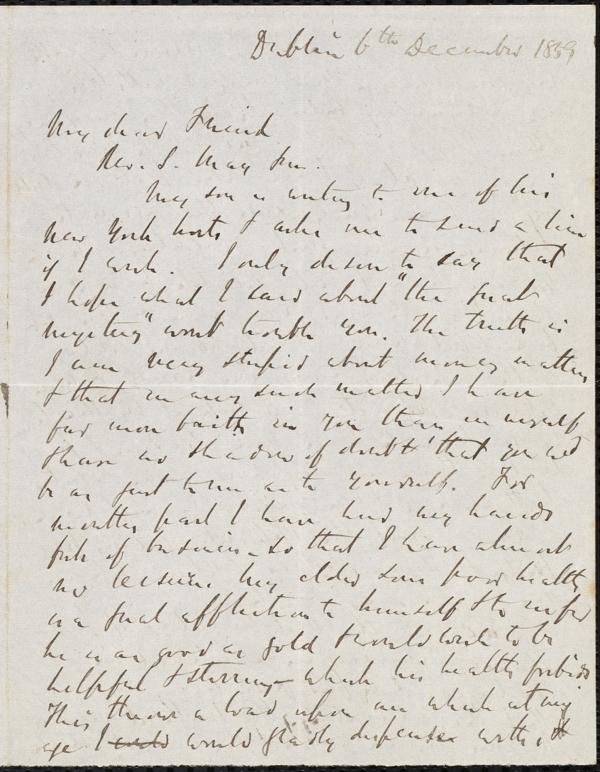 Dublin 6th December 1859
My dear Friend
Rev. S. May Jun.
My son is writing to one of his
New York hosts & asks me to send a line
if I wish. I only desire to say that
I hope what I said about "the great
mystery" wont trouble you. The truth is
I am very stupid about money matters
& that in any such matter I have
far more faith in you than in myself
& have no shadow of doubt that you will
be as just to me as to yourself. For
months past I have had my hands
full of business – so that I have almost
no leisure. My elder sons poor health
is a great affliction to himself & to us for
he is as good as gold & would wish to be
helpful & stirring – which his health forbids
This throws a load upon me which at my
age I would gladly dispense with, &